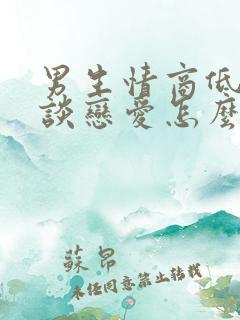 男生情商低
談戀愛怎麼
蘇昂
未任同意禁止转载